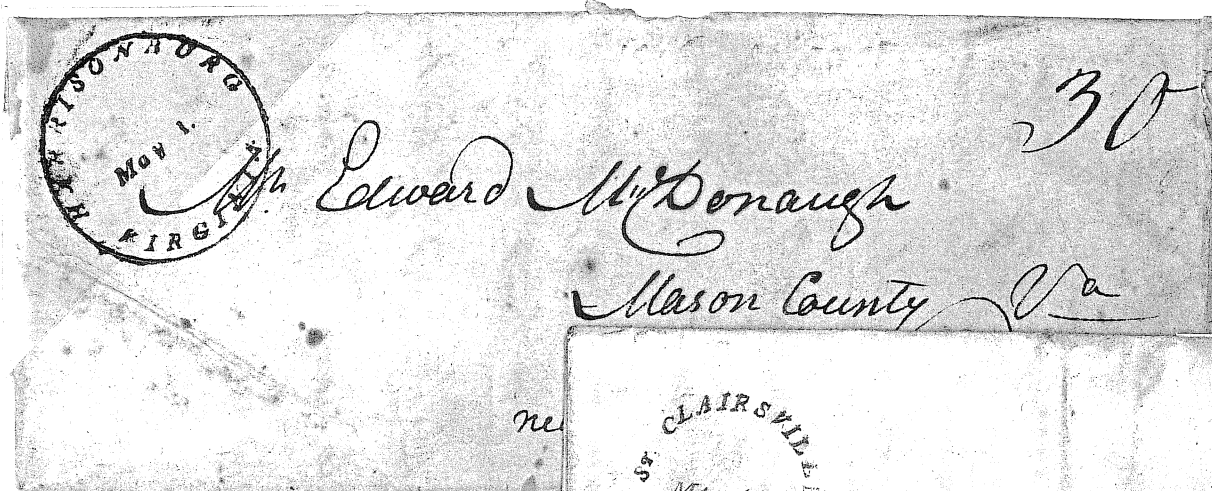 HARRISONBURG
May 1.
VIRGINIA
Mr. Edward McDonaugh
Mason County Va
St. CLAIRSVILL